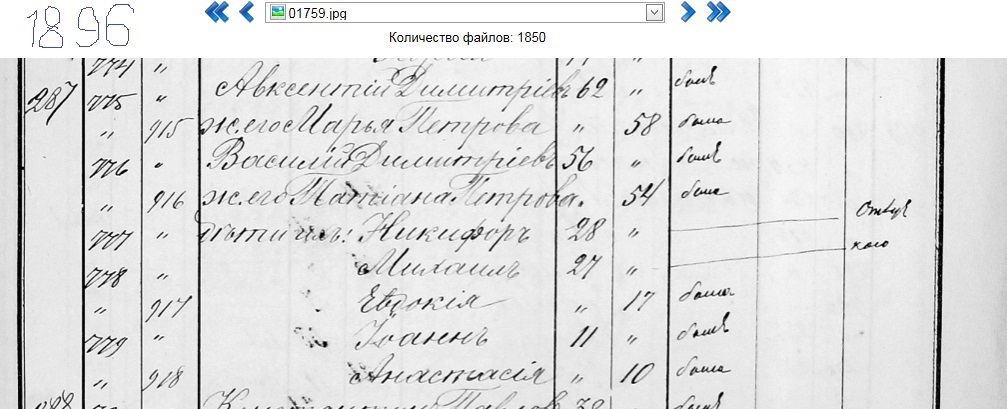 1896
01759.jpg
Количество файлов: 1850
774 "
287 775 " Авксентій Димитріевъ 62 " былъ
" 915 ж. его Марья Петрова " 58 была
776 " Василій Димитріевъ 56 " былъ
" 916 ж. его Татіана Петрова. 54 была
777 " дѣти ихъ: Никифоръ 28 "
778 " Михаилъ 27 "
" 917 Евдокія " 17 была
779 " Іоаннъ 11 " былъ
" 918 Анастасія " 10 была
288 Константинъ Павловъ 38 "